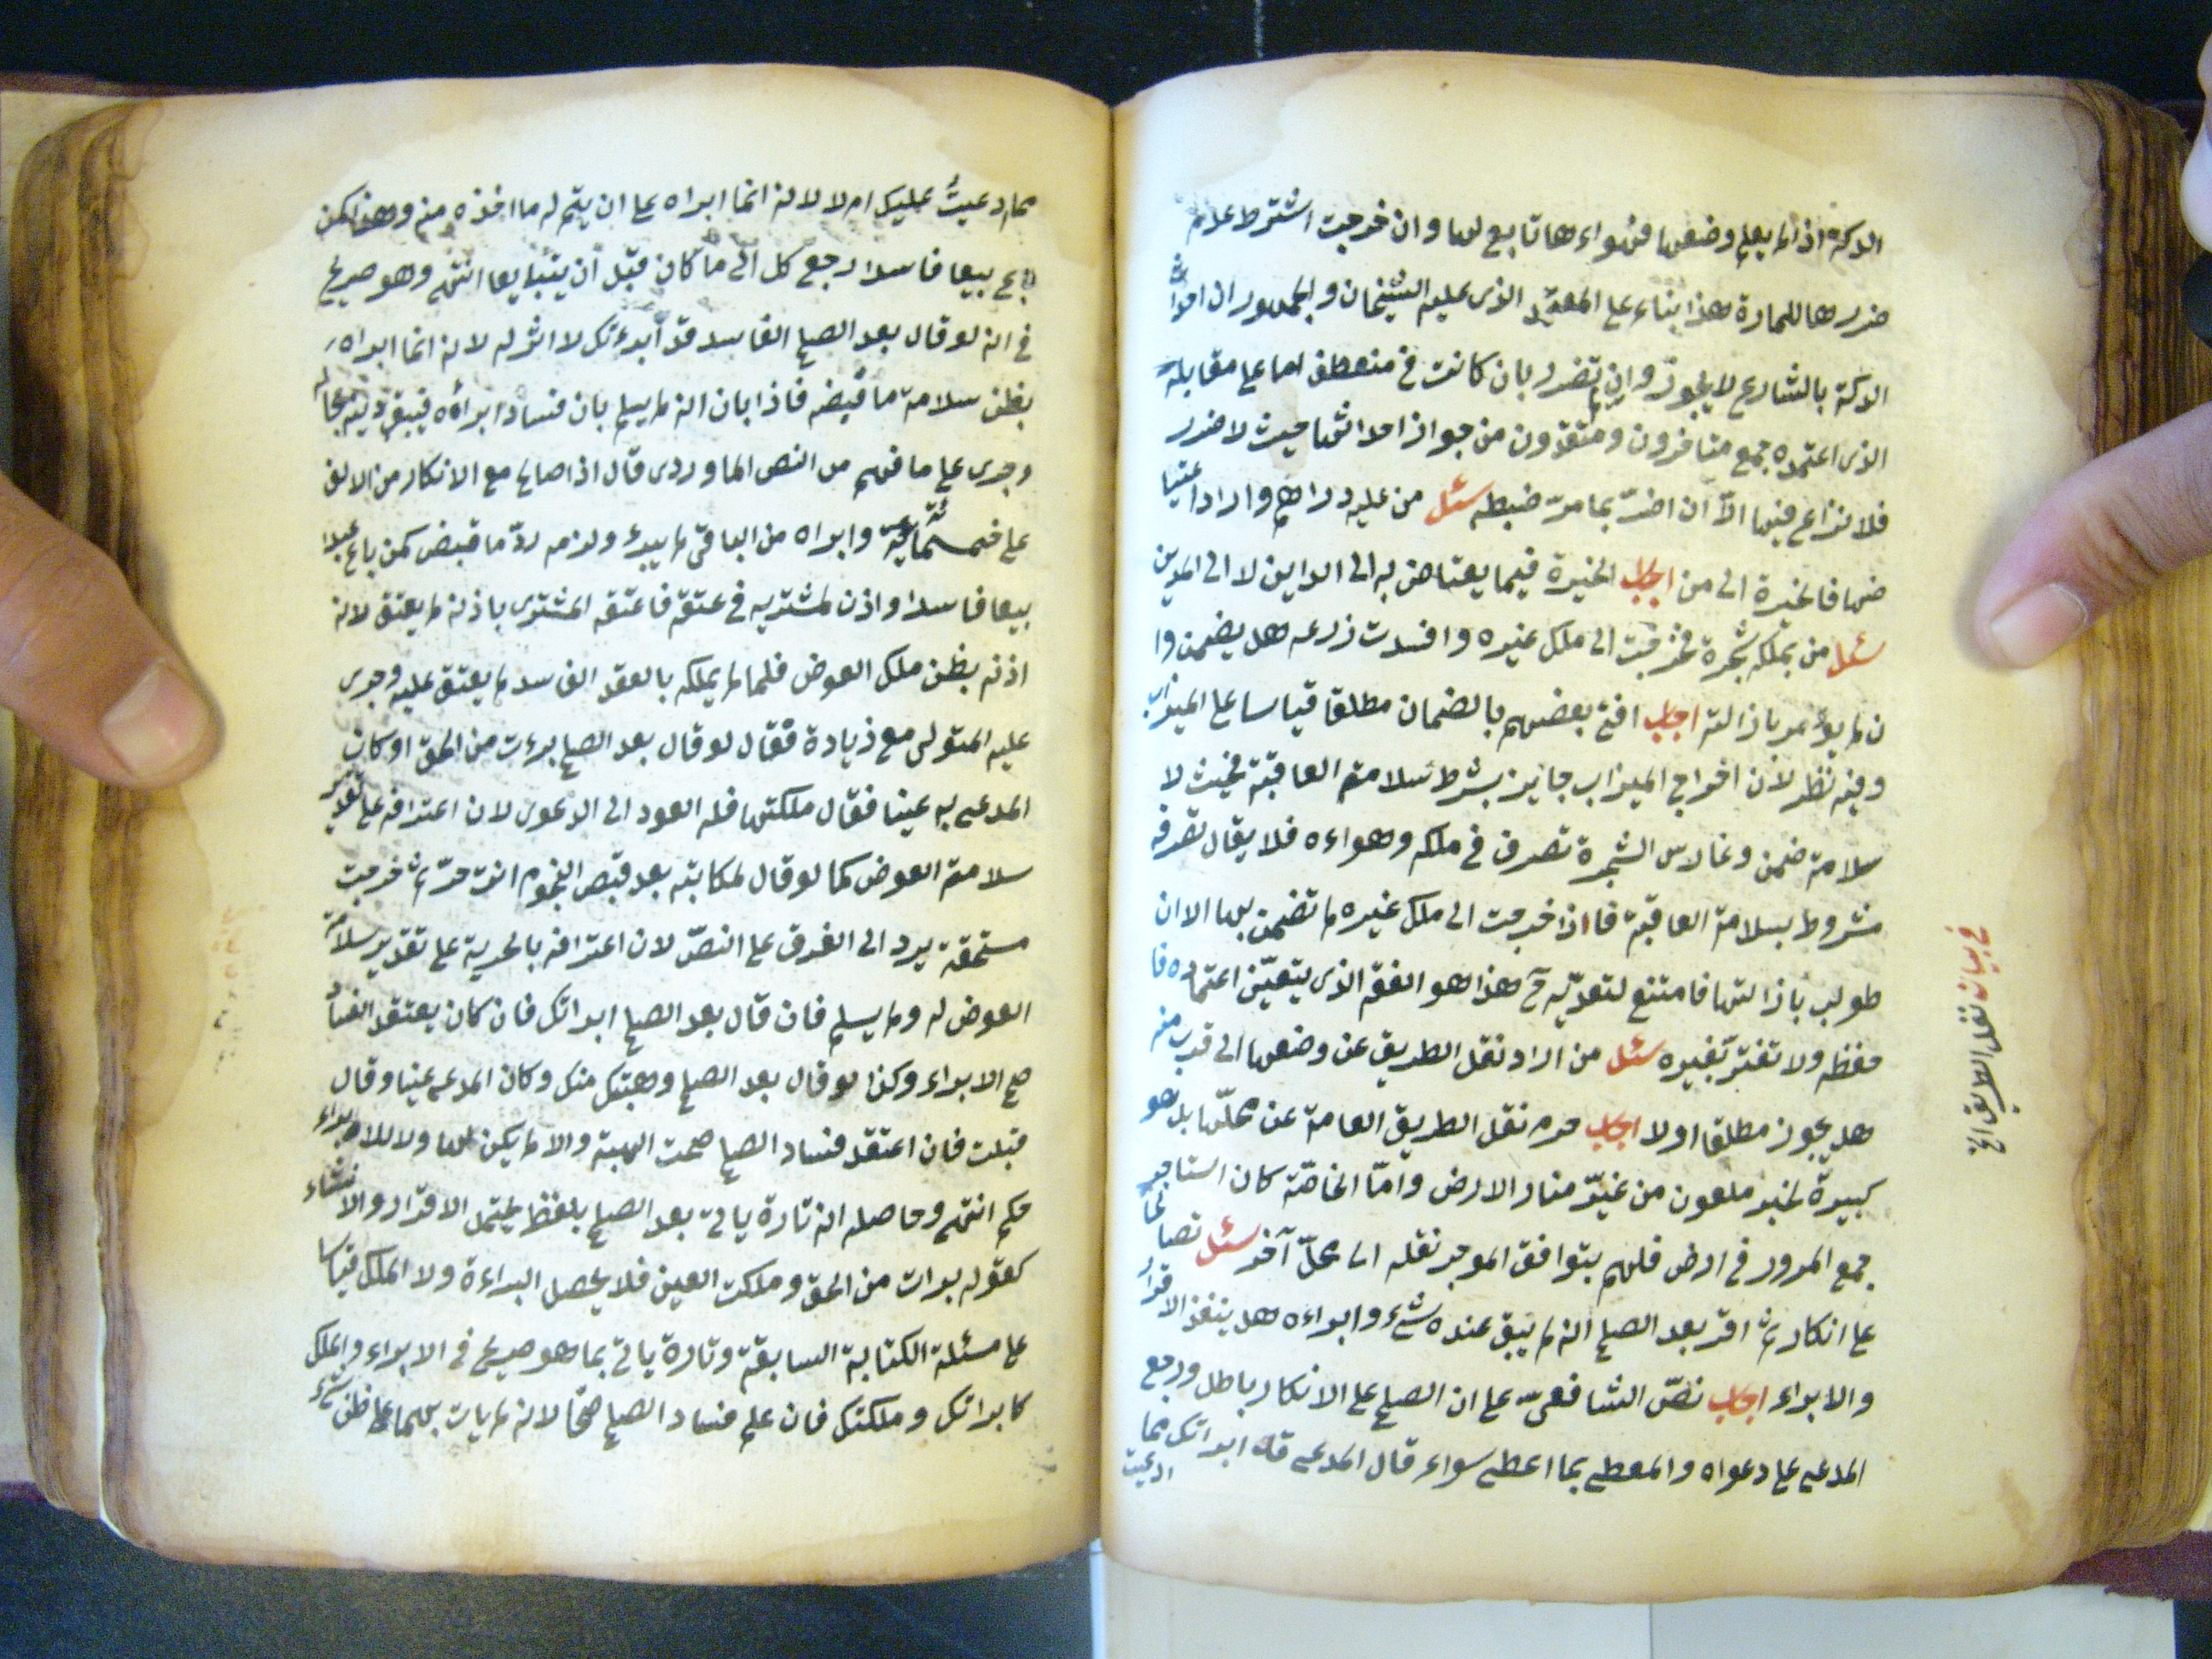 الدكة اذا لم يعلم وضعها فهواءها تابع لها وان خرجت اشترط عدم
ضررها للمارة هذا بناء على المعتمد الذى عليه الشيخان والجمهور ان احداث
الدكة بالشارع لا يجوز وان لم تضرر بان كانت فى منعطف اما على مقابله
الذى اعتمده جمع متأخرون ومتقدمون من جواز احداثها حيث لا ضرر
فلا نزاع فيها الاّ ان اضرّ بما مرّ ضبطه سئل من عليه دراهم واراد اعتيا
ضها فالخيرة الى من اجاب الخيرة فيما يعتاض به الى الداين لا الى المدين
سئل من بملكه شجرة فخرقت الى ملك غيره وافسدت زرعه هل يضمن وا
ن لم يؤمر بازالته اجاب افتى بعضهم بالضمان مطلقا قياسا على الميزاب
وفيه نظر لان اخراج الميزاب جايز بشرط سلامة العاقبة فحيث لا
سلامة ضمن وغارس الشجرة تصرف فى ملكه وهواءه فلا يقال تصرفه
مشروط بسلامة العاقبة فااذا خرجت الى ملك غيره لم تضمن بها الا ان
طولب بازالتها فامتنع لتعدّيه ح هذا هو الفقه الذى يتعيّن اعتماده فا
حفظه ولا تغتر بغيره سئل من اراد نقل الطريق عن وضعها الى قرب منه
هل يجوز مطلقا اولا اجاب حرم نقل الطريق العامة عن محلّها بل هو
كبيرة لخبر ملعون من غيّر منار الارض وامّا الخاصّة كان استاجر
جمع المرور فى ارض فلهم بتوافق الموجر نقله الى محلّ آخر سئل تصالحا
على انكار ثم اقر بعد الصلح انه لم يبق عنده شىء وابراءه هل ينفذ الاقرار
والابراء اجاب نصّ الشافعىّ على ان الصلح على الانكار باطل ورجع
المدعى على دعواه والمعطى بما اعطى سواء قال المدعى قد ابراتك مما
ادعيت
فى بيان نقل الطريق الخ
مما ادعيتُ عليك ام لا لانه انما ابراه على ان يتم له ما اخذه منه وهذا كمن
باع بيعا فاسدا رجع كل الى ما كان قبل ان يتبايعا انتهى وهو صريح
فى انه لو قال بعد الصلح الفاسد قد أبرءتك لا اثر له لانه انما ابراه
بظن سلامة ما قبضه فاذا بان انه لم يسلم بان فساد ابراؤه فيبقى دينه بحاله
وجرى على ما فهم من النص الماوردى قال اذا صالح مع الانكار من الالف
على خمسمائة وابراه من الباقى لم يبرء ولزمه ردّ ما قبض كمن باع عبدا
بيعا فاسدا واذن لمشتريه فى عتقه فاعتقه المشترى باذنه لم يعتق لانه
اذنه بظن ملك العوض فلما لم يملكه بالعقد الفاسد لم يعتق عليه وجرى
عليه المتولى مع زيادة فقال لو قال بعد الصلح برءت من الحق او كان
المدعى به عينا فقال ملكتها فله العود الى الدعوى لان اعترافه على تقدير
سلامة العوض كما لو قال لمكاتبه بعد قبض النجوم انت حرّ ثم خرجت
مستحقة يرد الى الفرق على النصّ لان اعترافه بالحرية على تقدير سلامة
العوض له ولم يسلم فان قال بعد الصلح ابراتك فان كان يعتقد الفساد
صح الابراء وكذا لو قال بعد الصلح وهبتك منك وكان المدعى عينا وقال
قبلت فان اعتقد فساد الصلح صحت الهبة والا لم يكن لها ولا للابراء
حكم انتهى وحاصله انه تارة ياتى بعد الصلح بلفظ يحتمل الاقرار والانشاء
كقوله برات من الحق وملكت العين فلا يحصل البراءة ولا الملك قياسا
على مسئلة الكتابة السابقة وتارة ياتى بما هو صريح فى الابراء والملك
كابراتك وملكتك فان علم فساد الصلح صحّا لانه لم يات بهما على ظن شىء